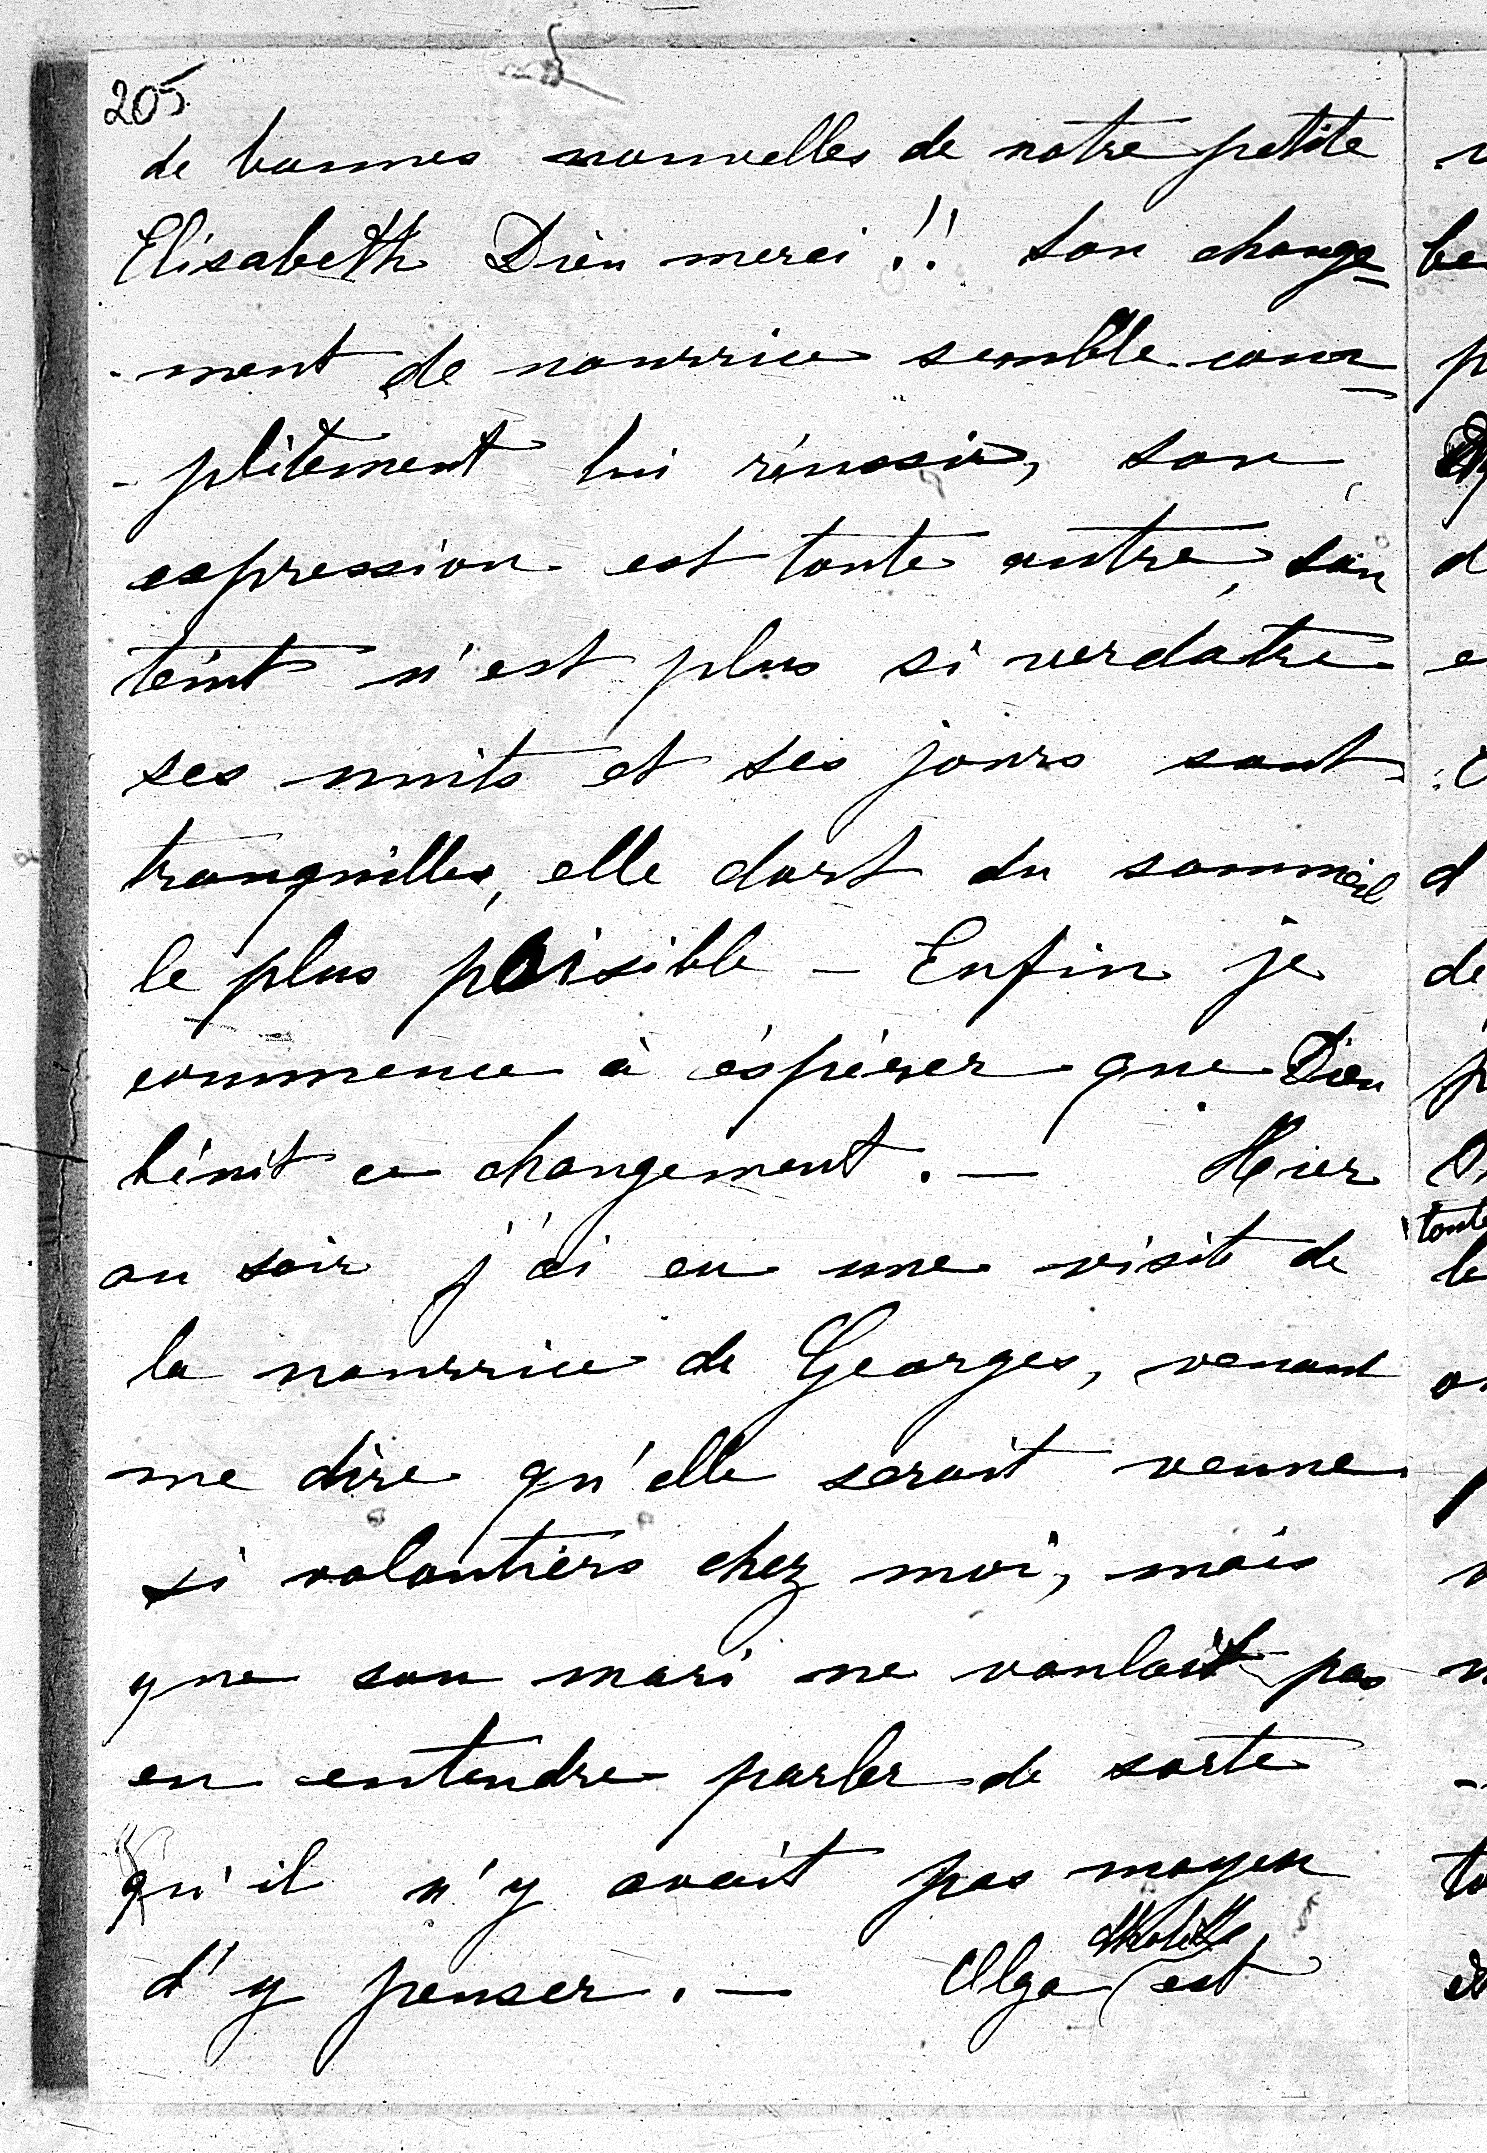 205
de bonnes nouvelles de notre petite
Elisabeth Dieu merci !! Son change-
-ment de nourrice semble com-
-plètement lui réussir, son
expression est toute autre, son
teint n'est plus si verdatre
ses nuits et ses jours sont
tranquilles, elle dort du sommeil
le plus paisible – Enfin je
commence à éspérer que Dieu
bénit ce changement. — Hier
au soir j'ai eu une visite de
la nourrice de Georges, venant
me dire qu'elle serait venue
si volontiers chez moi, mais
que son mari ne voulait pas
en entendre parler de sorte
qu'il n'y avait pas moyen
d'y penser. — Olga est